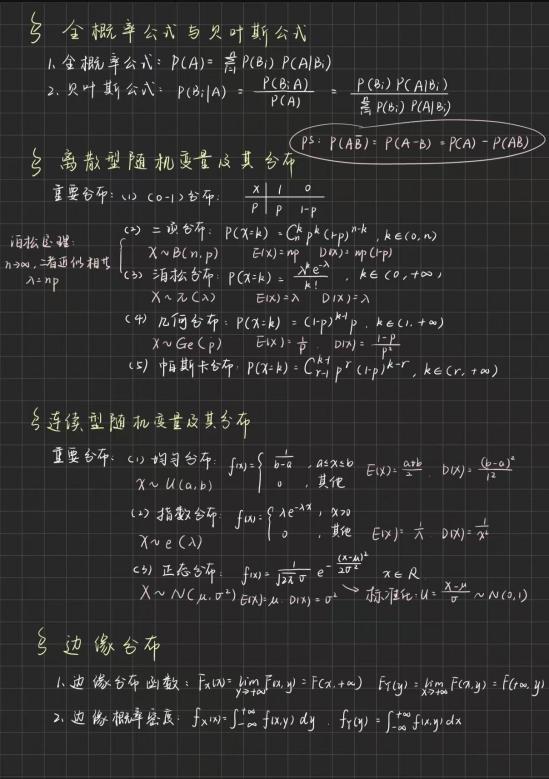 § 全概率公式与贝叶斯公式
1. 全概率公式: P(A) = ∑ᵢ₌₁ⁿ P(Bᵢ) P(A|Bᵢ)
2. 贝叶斯公式: P(Bᵢ|A) = P(BᵢA)/P(A) = P(Bᵢ)P(A|Bᵢ) / ∑ᵢ₌₁ⁿ P(Bᵢ) P(A|Bᵢ)
PS: P(AB̄) = P(A-B) = P(A) - P(AB)
§ 离散型随机变量及其分布
重要分布: (1) (0-1)分布: X | 1 0
P | P 1-P
(2) 二项分布: P(X=k) = Cₙᵏ pᵏ (1-p)ⁿ⁻ᵏ, k∈(0,n)
X~B(n,p) E(X)=np D(X)=np(1-p)
泊松定理:
n→∞, 二者近似相等
λ=np
(3) 泊松分布: P(X=k) = λᵏe^(-λ)/k!, k∈(0,+∞)
X~π(λ) E(X)=λ D(X)=λ
(4) 几何分布: P(X=k) = (1-p)ᵏ⁻¹p, k∈(1,+∞)
X~Ge(p) E(X)=1/p, D(X)=(1-p)/p²
(5) 帕斯卡分布: P(X=k) = Cₖ₋₁ʳ⁻¹ pʳ (1-p)ᵏ⁻ʳ, k∈(r,+∞)
§ 连续型随机变量及其分布
重要分布: (1) 均匀分布: f(x)={ 1/(b-a), a≤x≤b
X~U(a,b) 0, 其他 E(X)=(a+b)/2. D(X)=(b-a)²/12
(2) 指数分布: f(x)={ λe^(-λx), x>0
X~e(λ) 0, 其他 E(X)=1/λ. D(X)=1/λ²
(3) 正态分布: f(x)=1/(√(2π)σ) e^(-(x-μ)²/(2σ²)) x∈R
X~N(μ,σ²) E(X)=μ. D(X)=σ² → 标准化: U=(X-μ)/σ ~N(0,1)
§ 边缘分布
1. 边缘分布函数: F_X(x)=lim_(y→+∞) F(x,y)=F(x,+∞) F_Y(y)=lim_(x→+∞) F(x,y)=F(+∞,y)
2. 边缘概率密度: f_X(x)=∫₋∞⁺∞ f(x,y)dy. f_Y(y)=∫₋∞⁺∞ f(x,y)dx